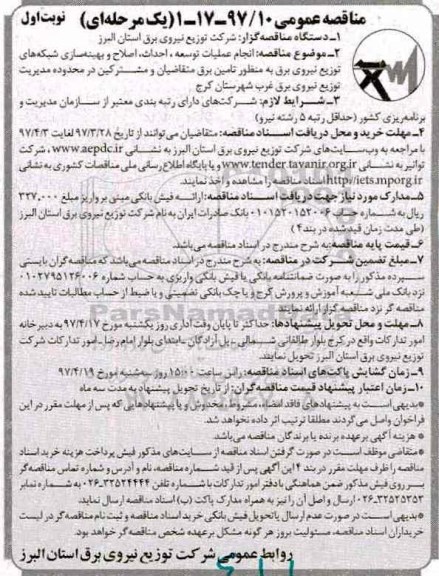 مناقصه عمومی ۹۷/۱۰-۱۷-۱(یک مرحله‌ای) نوبت اول
۱-دستگاه مناقصه‌گزار: شرکت توزیع نیروی برق استان البرز
۲-موضوع مناقصه: انجام عملیات توسعه ، احداث، اصلاح و بهینه‌سازی شبکه‌های
توزیع نیروی برق به منظور تامین برق متقاضیان و مشترکین در محدوده مدیریت
توزیع نیروی برق غرب شهرستان کرج
۳-شرایط لازم: شرکت‌های دارای رتبه بندی معتبر از سازمان مدیریت و
برنامه‌ریزی کشور (حداقل رتبه ۵ رشته نیرو)
۴-مهلت خرید و محل دریافت اسناد مناقصه: متقاضیان می‌توانند از تاریخ ۹۷/۳/۲۸ لغایت ۹۷/۴/۳
با مراجعه به وب‌سایت‌های شرکت توزیع نیروی برق استان البرز به نشانی www.aepdc.ir ، شرکت
توانیر به نشانی www.tender.tavanir.org.ir و یا پایگاه اطلاع رسانی ملی مناقصات کشوری به نشانی
http//iets.mporg.ir اسناد مناقصه را مشاهده و اخذ نمایند.
۵-مدارک مورد نیاز جهت دریافت اسناد مناقصه: ارائه فیش بانکی مبنی بر واریز مبلغ ۳۳۷,۰۰۰
ریال به شماره حساب ۰۱۰۱۵۲۰۱۵۲۰۰۶ بانک صادرات ایران به نام شرکت توزیع نیروی برق استان البرز
(طی مدت زمان قید شده در بند ۴)
۶-قیمت پایه مناقصه: به شرح مندرج در اسناد مناقصه می‌باشد.
۷-مبلغ تضمین شرکت در مناقصه: به شرح مندرج در اسناد مناقصه می‌باشد که مناقصه گران بایستی
سپرده مذکور را به صورت ضمانتنامه بانکی یا فیش بانکی واریزی به حساب شماره ۰۱۰۲۷۹۵۱۲۶۰۰۶
نزد بانک ملی شعبه آموزش و پرورش کرج و یا چک بانکی تضمینی و یا ضبط از حساب مطالبات تایید شده
مناقصه گر نزد مناقصه گزار ارائه نمایند.
۸-مهلت و محل تحویل پیشنهادها: حداکثر تا پایان وقت اداری روز یکشنبه مورخ ۹۷/۴/۱۷ به دبیرخانه
امور تدارکات واقع در کرج بلوار طالقانی شمالی - پل آزادگان - ابتدای بلوار امام رضا - امور تدارکات شرکت
توزیع نیروی برق استان البرز تحویل نمایند.
۹-زمان گشایش پاکت‌های اسناد مناقصه: راس ساعت ۱۵:۰۰ روز سه‌شنبه مورخ ۹۷/۴/۱۹
۱۰-زمان اعتبار پیشنهاد قیمت مناقصه گران: از تاریخ تحویل پیشنهاد به مدت سه ماه
*بدیهی است به پیشنهادهای فاقد امضاء، مشروط، مخدوش و یا پیشنهادهایی که پس از مهلت مقرر در این
فراخوان واصل می‌گردند مطلقا ترتیب اثر داده نخواهد شد.
* هزینه آگهی برعهده برنده یا برندگان مناقصه می‌باشد
*متقاضی موظف است در صورت گرفتن اسناد مناقصه از سایت‌های مذکور فیش پرداخت هزینه خرید اسناد
مناقصه را ظرف مهلت مقرر در بند ۴ این آگهی پس از قید شماره مناقصه، نام و آدرس و شماره تماس مناقصه‌گر
بر روی فیش مذکور ضمن هماهنگی با دفتر امور تدارکات با شماره تلفن ۳۲۵۲۴۴۴۴-۰۲۶ به شماره نمابر
۳۲۵۲۵۲۵۳-۰۲۶ ارسال و اصل آن را نیز به همراه مدارک پاکت (ب) اسناد مناقصه ارسال نماید.
*بدیهی است در صورت عدم ارسال یا تحویل فیش بانکی خرید اسناد مناقصه و ثبت نام مناقصه‌گر در لیست
خریداران اسناد مناقصه، مسئولیت بروز هر گونه مشکل برعهده شخص مناقصه گر خواهد بود.
روابط عمومی شرکت توزیع نیروی برق استان البرز